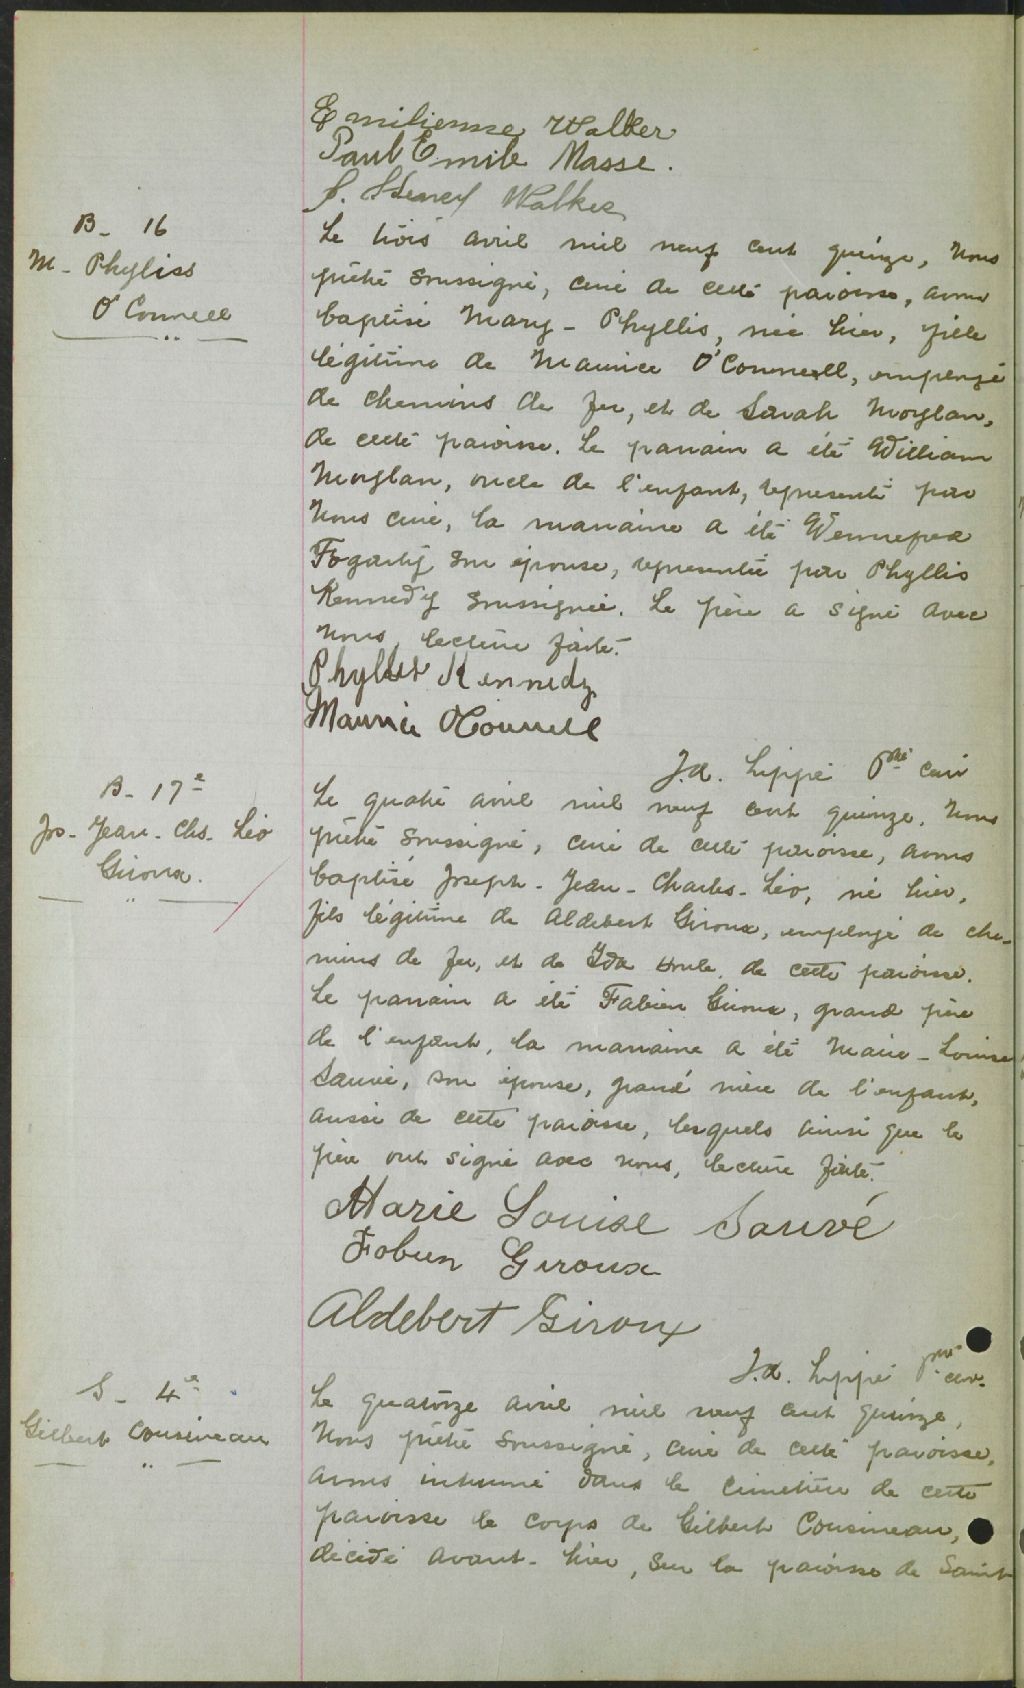 Emilienne Walker
Paul Emile Masse.
J. Henery Walker
B - 16
M - Phyliss
O'Connell
Le trois avril mil neuf cent quinze, Nous
prêtre soussigné, curé de cette paroisse, avons
baptisé Mary - Phyllis, née hier, fille
légitime de Maurice O'Connell, employé
de chemins de fer, et de Sarah Moylan,
de cette paroisse. Le parrain a été William
Moylan, oncle de l'enfant, représenté par
Nous curé, la marraine a été
Fogarty son épouse, représentée par Phyllis
Kennedy soussignée. Le père a signé avec
Nous, lecture faite.
Phyllis Kennedy
Maurice O'Connell
J.A. Lippé Ptre curé
B - 17e
Js - Jean - Chs - Léo
Giroux.
Le quatre avril mil neuf cent quinze, Nous
prêtre soussigné, curé de cette paroisse, avons
baptisé Joseph - Jean - Charles - Léo, né hier,
fils légitime de Aldebert Giroux, employé de che-
mins de fer, et de Ida de cette paroisse.
Le parrain a été Fabien Giroux, grand père
de l'enfant, la marraine a été Marie - Louise
Sauvé, son épouse, grand'mère de l'enfant,
aussi de cette paroisse, lesquels ainsi que le
père ont signé avec nous, lecture faite.
Marie Louise Sauvé
Fabien Giroux
Aldebert Giroux
J.A. Lippé Ptre cur.
S - 4e
Gilbert Cousineau
Le quatorze avril mil neuf cent quinze,
Nous prêtre soussigné, curé de cette paroisse,
avons inhumé dans le cimetière de cette
paroisse le corps de Gilbert Cousineau,
décédé avant - hier, sur la paroisse de Saint